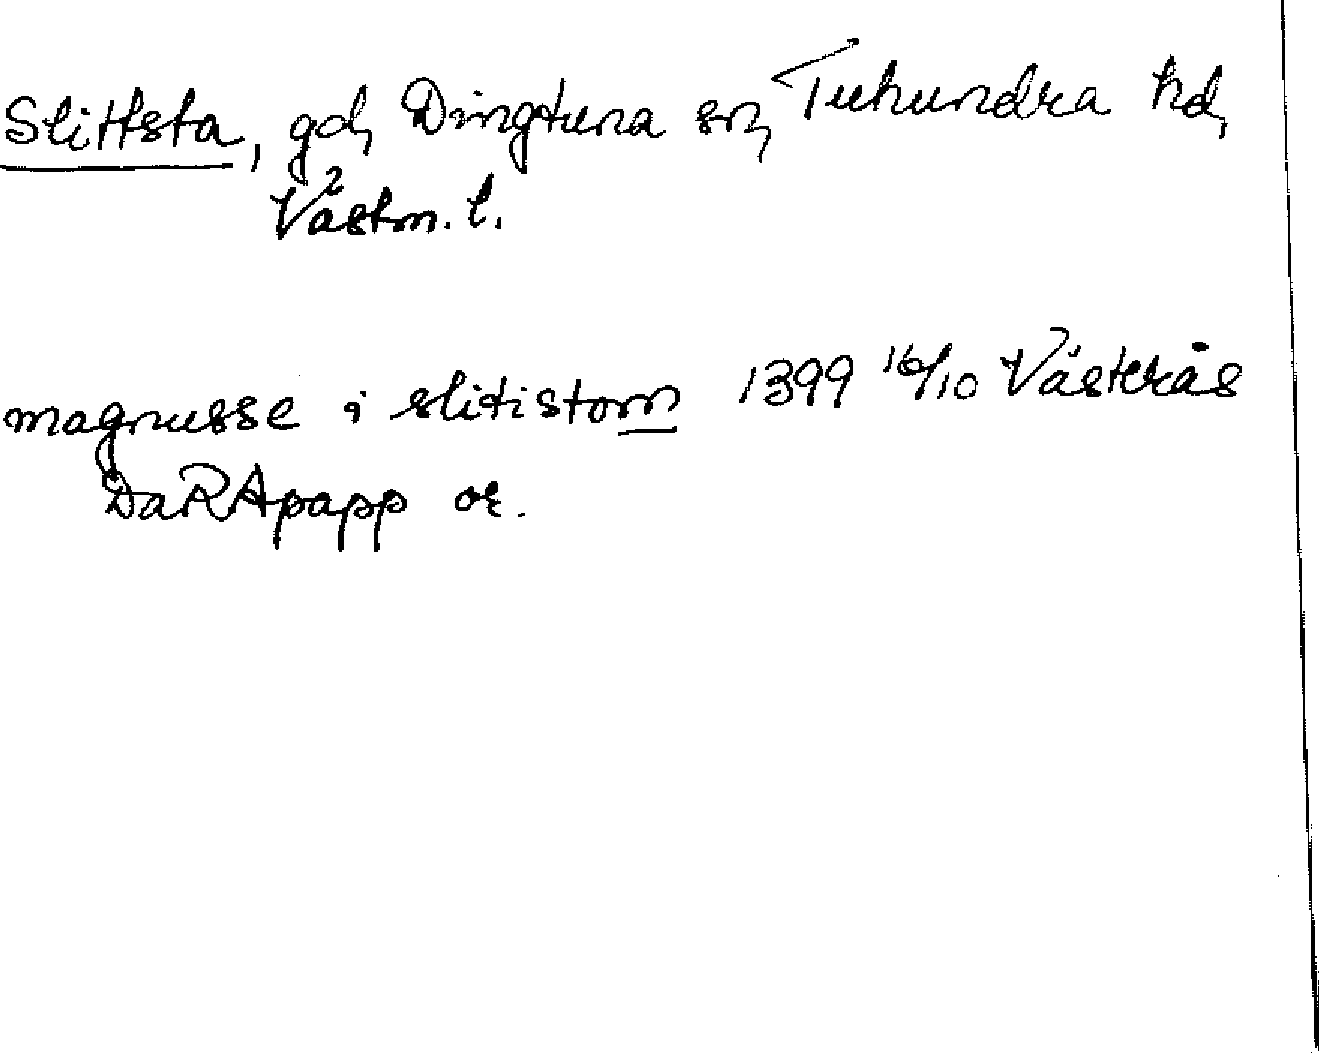 Slittsta, gd, Dingtuna sn, Tuhundra hd,
Västm. l.
magnusse i slitistom 1399 16/10 Västerås
DaRApapp or.